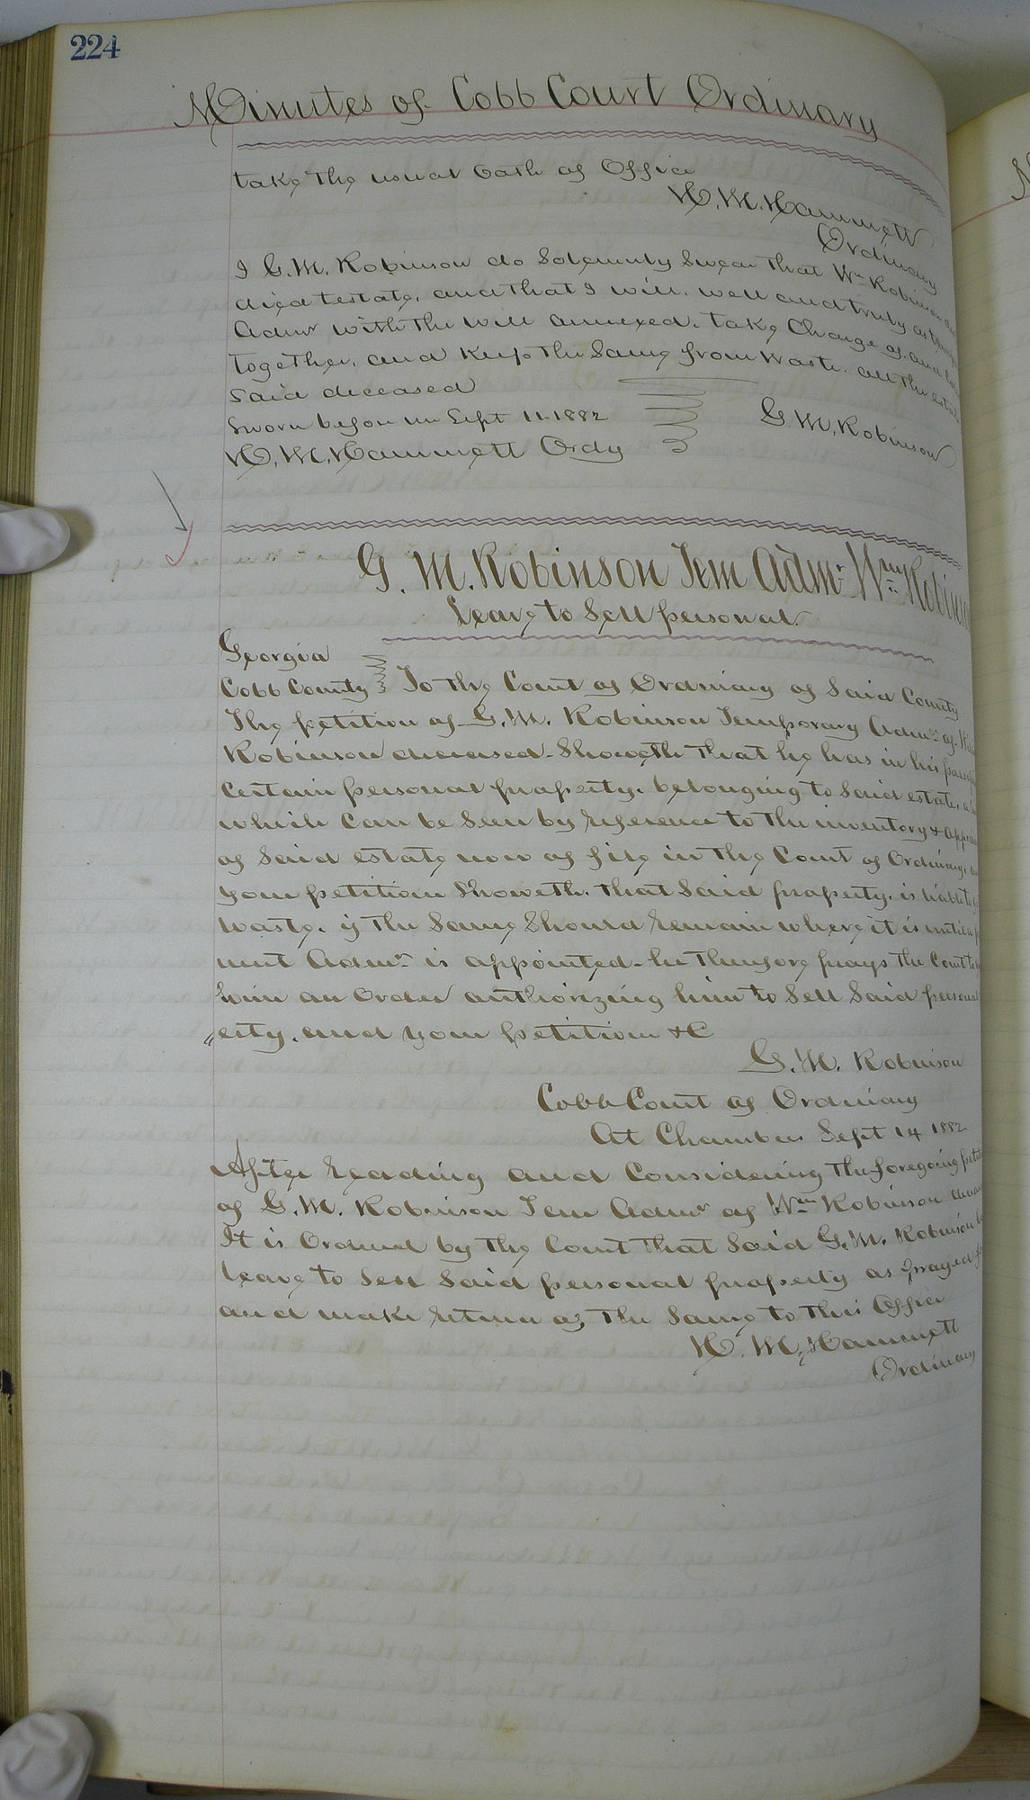 224
Minutes of Cobb Court Ordinary
take the usual Oath of Office
H. M. Hammett
Ordinary
I G. M. Robinson do Solemnly Swear that Wm Robinson
died testate, and that I will, well and truly as
Admr with the will annexed, take Charge of, and
together, and Keep the Same from Waste, all the
Said deceased
Sworn before me Sept 11 1882
G. M. Robinson
H. M. Hammett Ordy
G. M. Robinson Tem Admr Wm
Leave to Sell personal
Georgia
Cobb County To the Court of Ordinary of Said County
The petition of G. M. Robinson Temporary Admr of
Robinson deceased Showeth that he has in his
Certain personal property, belonging to Said estate, a
which Can be Seen by reference to the inventory &
of Said estate now of file in the Court of Ordinary,
your petition Showeth, that Said property, is liable to
Waste, if the Same Should remain where it is until a
nent Admr is appointed he therefore prays the Court to
him an Order authorizing him to Sell Said
"erty, and your petition &C
G. M. Robinson
Cobb Court of Ordinary
At Chambers Sept 14 1882
After reading and Considering the foregoing
of G. M. Robinson Tem Admr of Wm Robinson
It is Ordered by the Court that Said G. M. Robinson
leave to Sell Said personal property as prayed
and make return of the Same to this Office
H. M. Hammett
Ordinary